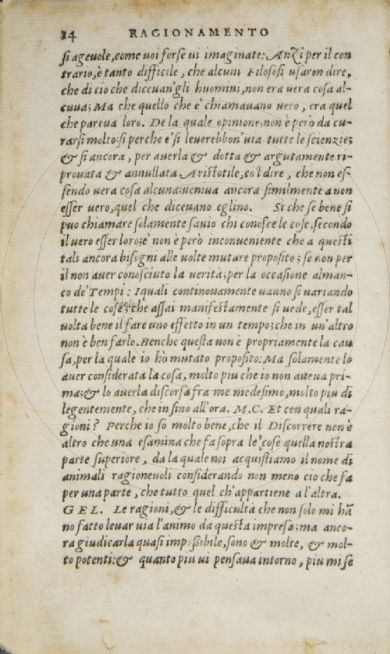 14 RAGIONAMENTO
si ageuole, come uoi forse ui imaginate: Anzi per il con
trario, è tanto difficile, che alcuni Filosofi usaron dire,
che di cio che diceuan gli huomini, non era uera cosa al-
cuua; Ma che quello che e' chiamauano uero, era quel
che pareua loro. De la quale opinione non è però da cu-
rarsi molto: si perche e' si leuerebbon' uia tutte le scienzie;
& si ancora, per auerla & dotta & argutamente ri-
prouata & annullata Aristotile, co'l dire, che non es-
sendo uera cosa alcuna: ueniua ancora similmente a non
esser uero, quel che diceuano eglino. Si che se bene si
puo chiamare solamente sauio chi conosce le cose, secondo
il uero esser loro; e' non è però inconueniente che a questi
tali ancora bisogni alle uolte mutare proposito; se non per
il non auer conosciuto la uerita; per la occasione alman-
co de' Tempi: Iquali continouamente uanno si uariando
tutte le cose; che assai manifestamente si uede, esser tal
uolta bene il fare uno effetto in un tempo; che in un'altro
non è ben farlo. Benche questa non è propriamente la cau
sa, per la quale io ho mutato proposito: Ma solamente lo
auer considerata la cosa, molto piu che io non aueua pri-
ma; & lo auerla discorsa fra me medesimo, molto piu di
legentemente, che in sino all'ora. M.C. Et con quali ra-
gioni? Perche io so molto bene, che il Discorrere non è
altro che una esamina che fa sopra le cose quella nostra
parte superiore, da la quale noi acquistiamo il nome di
animali ragioneuoli considerando non meno cio che fa
per una parte, che tutto quel ch'appartiene a l'altra.
GEL. Le ragioni, & le difficultà che non solo mi hā
no fatto leuar uia l'animo da questa impresa; ma anco-
ra giudicarla quasi impossibile, sono & molte, & mol-
to potenti: & quanto piu ui pensaua intorno, piu mi se